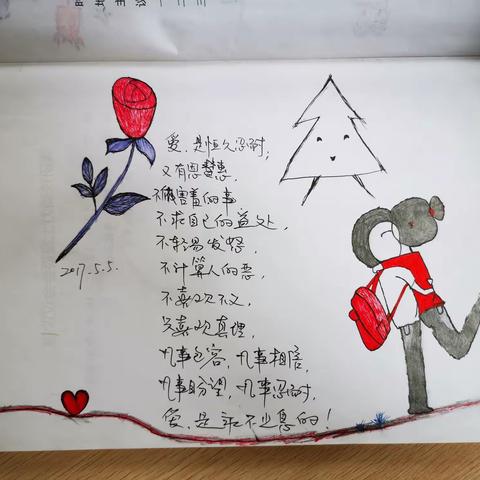 爱，是恒久忍耐；
又有恩慈，
不做害羞的事
不求自己的益处，
不轻易发怒，
不计算人的恶，
不喜欢不义，
只喜欢真理，
凡事包容，凡事相信，
凡事盼望，凡事忍耐，
爱，是永不止息的！
2017.5.5.